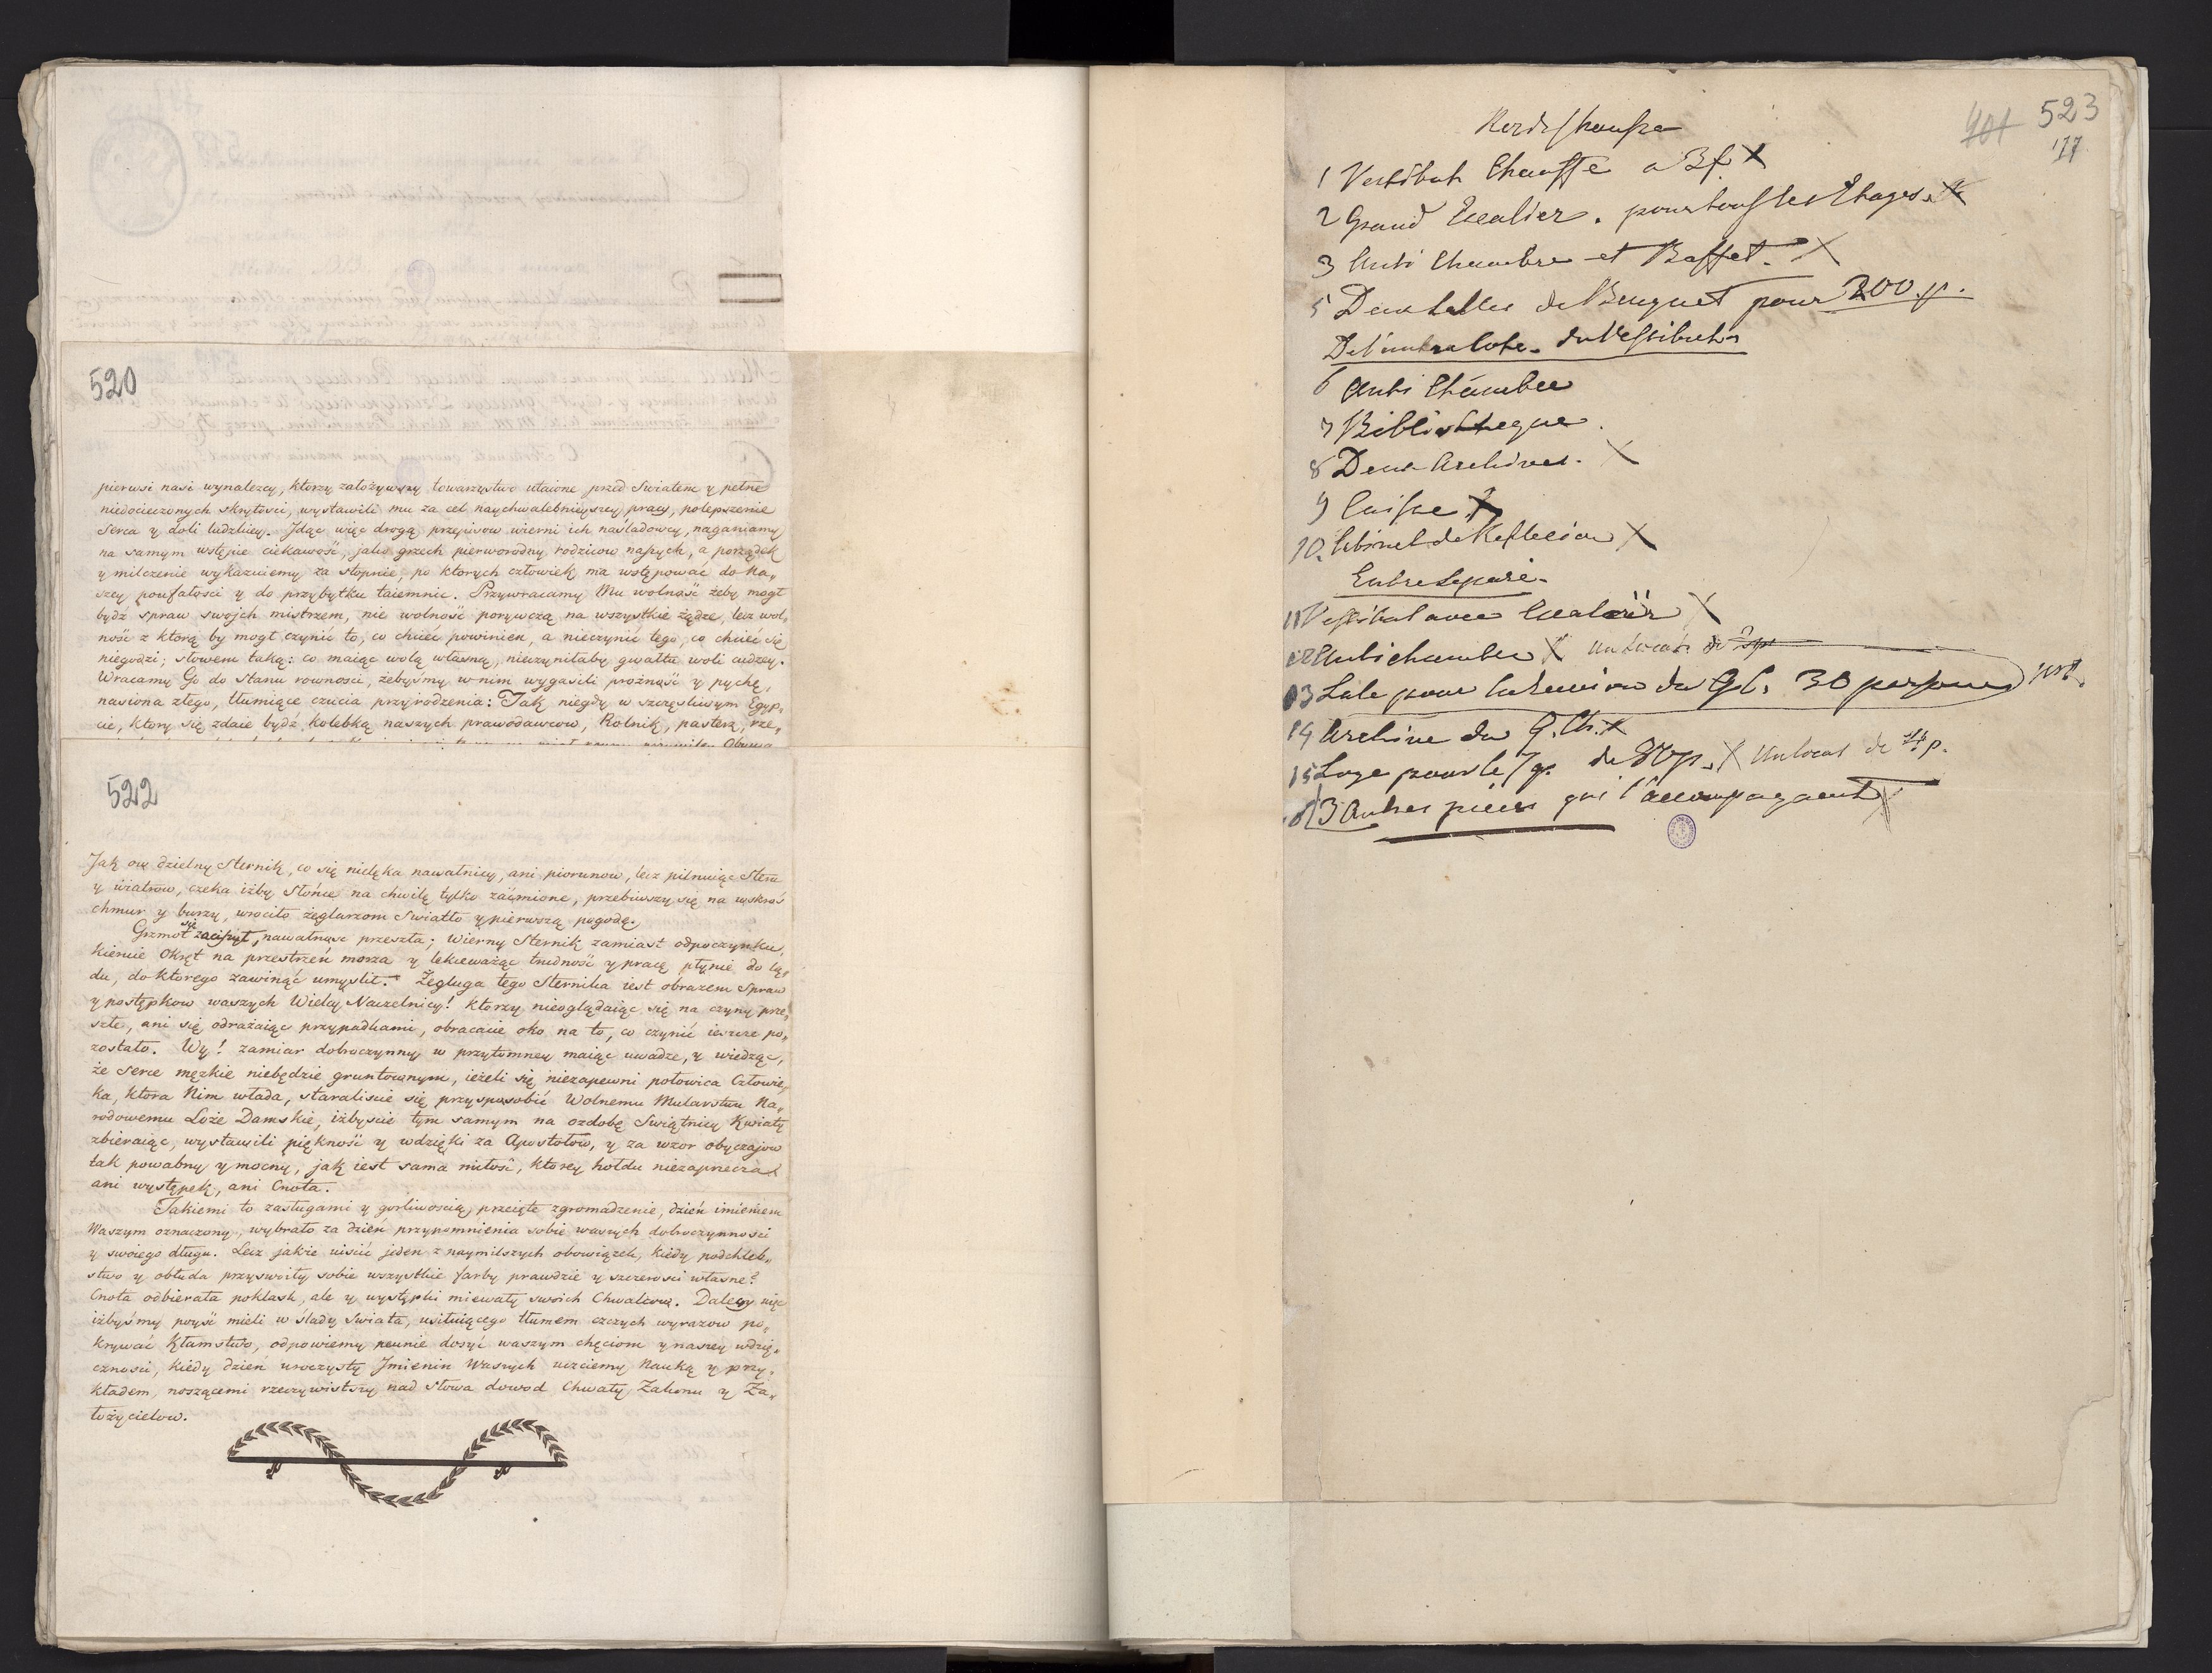 520
pierwsi nasi wynalezcy, ktorzy założywszy towarzystwo utaione przed światem y pełne
niedocieczonych skrytości, wystawili mu za cel naychwalebnieyszey pracy, polepszenie
serca y doli ludzkiey. Idąc więc drogą przepisow wierni ich naśladowcy, naganiamy
na samym wstępie ciekawość, jako grzech pierworodny rodzicow naszych, a porządek
y milczenie wykazuiemy za stopnie, po ktorych człowiek ma wstępować do Na„
szey poufałości y do przybytku taiemnic. Przywracamy Mu wolność żeby mogł
bydź spraw swojch mistrzem, nie wolność porywczą na wszystkie żądze, lecz wol„
ność z ktorą by mogł czynić to, co chcieć powinien, a nieczynić tego, co chcieć się
niegodzi; słowem taką: co maiąc wolą własną, nieczyniłaby gwałtu woli cudzey.
Wracamy Go do stanu rowności, żebyśmy w nim wygasili prożność y pychę,
nasiona złego, tłumiące czucia przyrodzenia: Tak niegdy w szczęśliwym Egyp„
cie, ktory się zdaie bydź kolebką naszych prawodawcow, Rolnik, pasterz, rze„
522
Jak ow dzielny Sternik, co się nielęka nawałnicy, ani piorunow, lecz pilnuiąc Steru
y wiatrow, czeka iżby Słońce na chwilę tylko zaćmione, przebiwszy się na wskroś
chmur y burzy, wrociło żeglarzom Swiatło y pierwszą pogodę.
Grzmot się zaciszył, nawałność przeszła; Wierny Sternik zamiast odpoczynku,
kieruie Okręt na przestrzeń morza y lekceważąc trudność y pracę płynie do lą„
du, do ktorego zawinąć umyslił. Żegluga tego Sternika iest obrazem Spraw
y postępkow waszych Wielcy Naczelnicy! ktorzy nieoglądaiąc się na czyny prze„
szłe, ani się odrażaiąc przypadkami, obracacie oko na to, co czynić ieszcze po„
zostało. Wy! zamiar dobroczynny w przytomney maiąc uwadze, y wiedząc,
że serce męzkie niebędzie gruntownym, ieżeli się niezapewni połowica Człowie„
ka, ktora Nim włada, staraliscie się przysposobić Wolnemu Mularstwu Na„
rodowemu Loże Damskie, iżbyscie tym samym na ozdobę Swiątnicy Kwiaty
zbieraiąc, wystawili piękność y wdzięki za Apostołow, y za wzor obyczajow
tak powabny y mocny, jak iest sama miłość, ktorey hołdu niezaprzeczał
ani występek, ani Cnota.
Takiemi to zasługami y gorliwością przeięte zgromadzenie, dzień imieniem
Waszym oznaczony, wybrało za dzień przypomnienia sobie waszych dobroczynności
y swoiego długu. Lecz jakże uiścić jeden z naymilszych obowiązek, kiedy podchleb„
stwo y obłuda przyswoiły sobie wszystkie farby prawdzie y szczerości własne?
Cnota odbierała poklask, ale y występki miewały swoich Chwalcow. Dalecy więc
iżbyśmy poyść mieli w ślady Swiata, usiłuiącego tłumem czczych wyrazow po„
krywać Kłamstwo, odpowiemy pewnie dosyć waszym chęciom y naszey wdzię„
czności, kiedy dzień uroczysty Jmienin Waszych uczciemy Nauką y przy„
kładem, noszącemi rzeczywistszy nad słowa dowod Chwały Zakonu y Za„
łożycielow.
401 523
177
1 Vestibul Chauffé
2 Grand Escalier. pour tous les Etages. X
3 Anti Chambre et Buffet. X
5 Deux salles de Banquet pour 200 p.
De l'autre Cote du Vestibule
6 Anti Chambre
7 Bibliotheque.
8 Deux Archives. X
9 Caisse X
10. Cabinet de Reflection X
Entre separé.
11 Vestibul avec Escalier X
12 Antichambre X
13 Sale pour la reunion du G. C. 30 personnes
14 Archive du G. Ch. X
15 Loge pour le de 80 p. X Un local de p.
3 Autres pieces qui l'accompagnent X